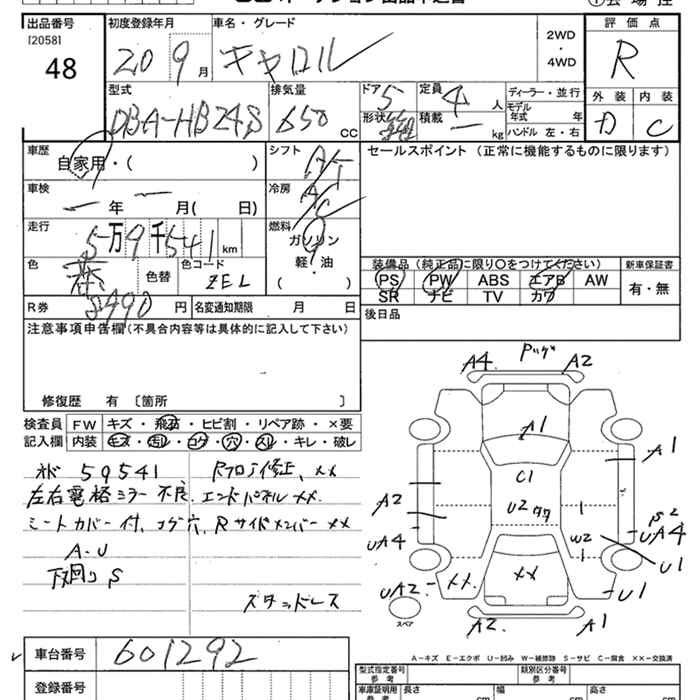 出品番号 初度登録年月 車名・グレード 2WD・4WD 評価点
[2058]
48 20 9月 キャロル R
型式 排気量 ドア 定員 ディーラー・並行 外装 内装
DBA-HB24S 650 CC 5 4人 モデル年式 年
形状 積載 ー kg ハンドル 左・右 C
車歴 シフト セールスポイント (正常に機能するものに限ります)
自家用・( ) AT
車検 冷房
ー 年 ー 月( 日) AC
走行 燃料
5万9千541km ガソリン
軽・油
( )
色 色替 色コード 装備品 (純正品に限り○をつけてください) 新車保証書
茶 ZEL PS PW ABS エアB AW 有・無
SR ナビ TV カワ
R券 8490円 名変通知期限 月 日 後日品
注意事項申告欄(不具合内容等は具体的に記入して下さい)
修復歴 有 〔箇所 〕
検査員 FW キズ・飛石・ヒビ割・リペア跡・×要
記入欄 内装 キズ・汚レ・コゲ・穴・スレ・キレ・破レ
59541 修正、××
左右電格ミラー不良、エンドパネル××
シートカバー付、コゲ穴、Rサイドメンバー××
A・U
下回りS
スタッドレス
A4 A2
A1
A1
C1
A2 U2
UA4 W2 UA4
U1
UA2 ×× ×× U1
スペア A2 A1
A-キズ E-エクボ U-凹み W-補修跡 S-サビ C-腐食 ××-交換済
車台番号 601292
登録番号
型式指定番号 参考 類別区分番号 参考
車庫証明用 参考 長さ cm 幅 cm 高さ cm